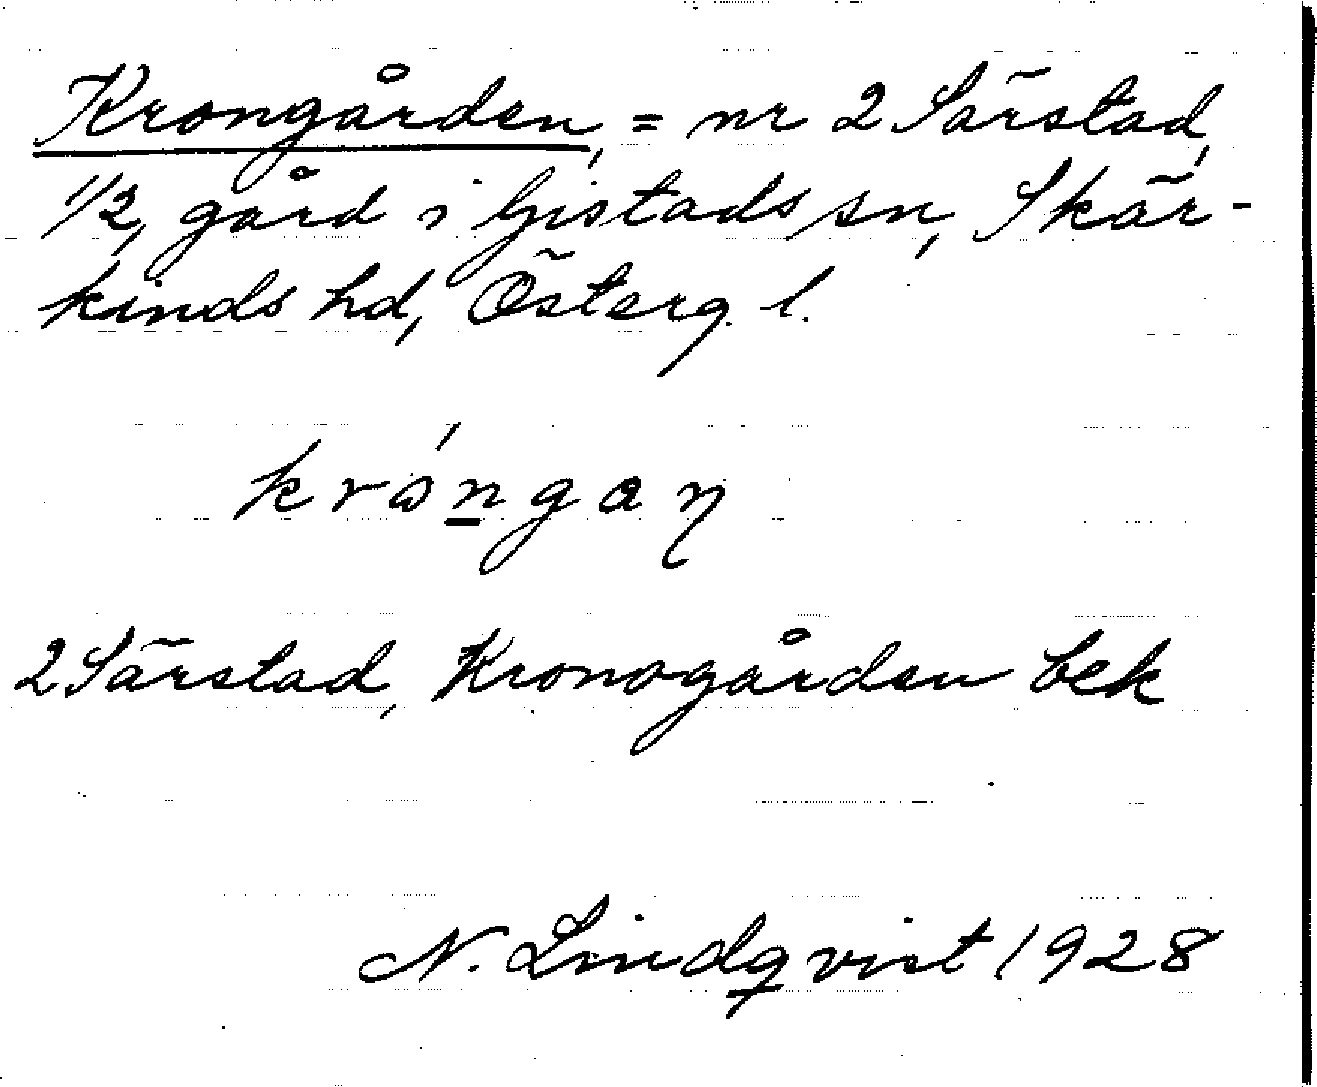 Krongården, = nr 2 Särstad,
1/2, gård i Gistads sn, Skär-
kinds hd, Österg. l.
2 Särstad, Kronogården bek
N. Lindqvist 1928